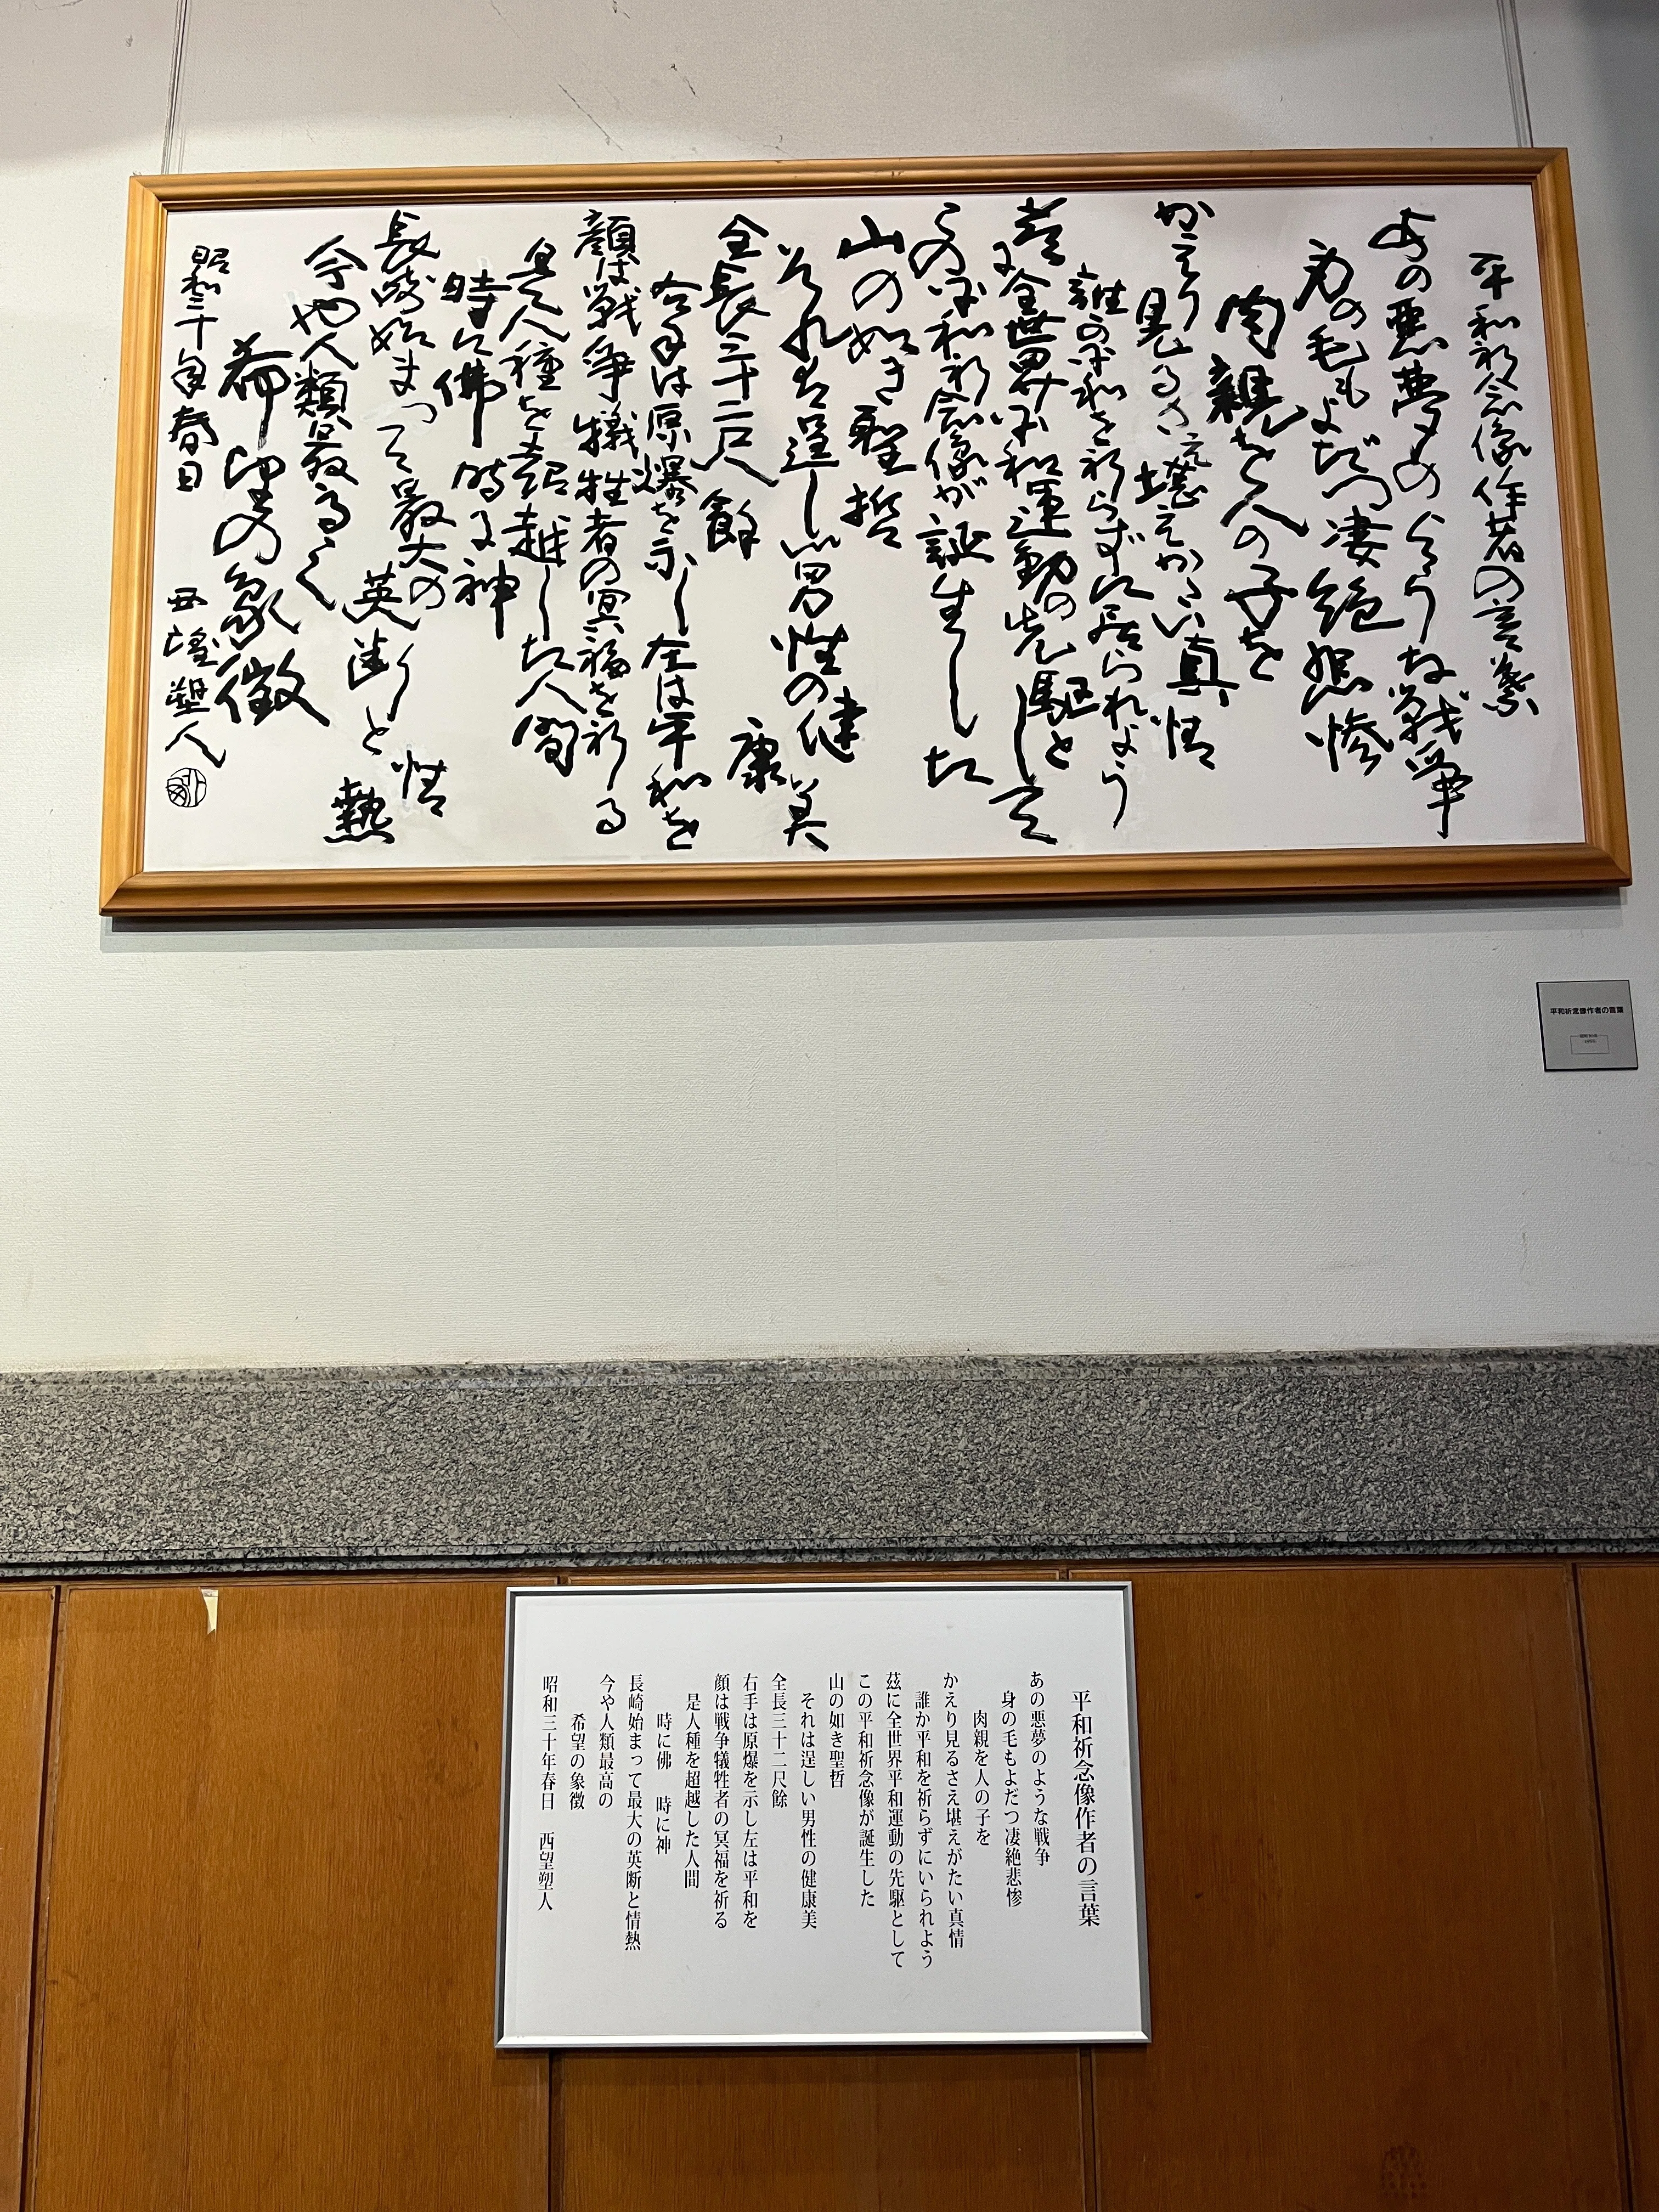 平和祈念像作者の言葉
あの悪夢のような戦争
身の毛もよだつ凄絶悲惨
肉親を人の子を
かえり見るさえ堪えがたい真情
誰か平和を祈らずに居られよう
茲に全世界平和運動の先駆として
この平和祈念像が誕生した
山の如き聖哲
それは逞しい男性の健康美
全長三十二尺餘
右手は原爆を示し左は平和を
顔は戦争犠牲者の冥福を祈る
是人種を超越した人間
時に佛 時に神
長崎始まって最大の英断と情熱
今や人類最高の
希望の象徴
昭和三十年春日 西望塑人
平和祈念像作者の言葉
平和祈念像作者の言葉
あの悪夢のような戦争
身の毛もよだつ凄絶悲惨
肉親を人の子を
かえり見るさえ堪えがたい真情
誰か平和を祈らずにいられよう
茲に全世界平和運動の先駆として
この平和祈念像が誕生した
山の如き聖哲
それは逞しい男性の健康美
全長三十二尺餘
右手は原爆を示し左は平和を
顔は戦争犠牲者の冥福を祈る
是人種を超越した人間
時に佛 時に神
長崎始まって最大の英断と情熱
今や人類最高の
希望の象徴
昭和三十年春日 西望塑人